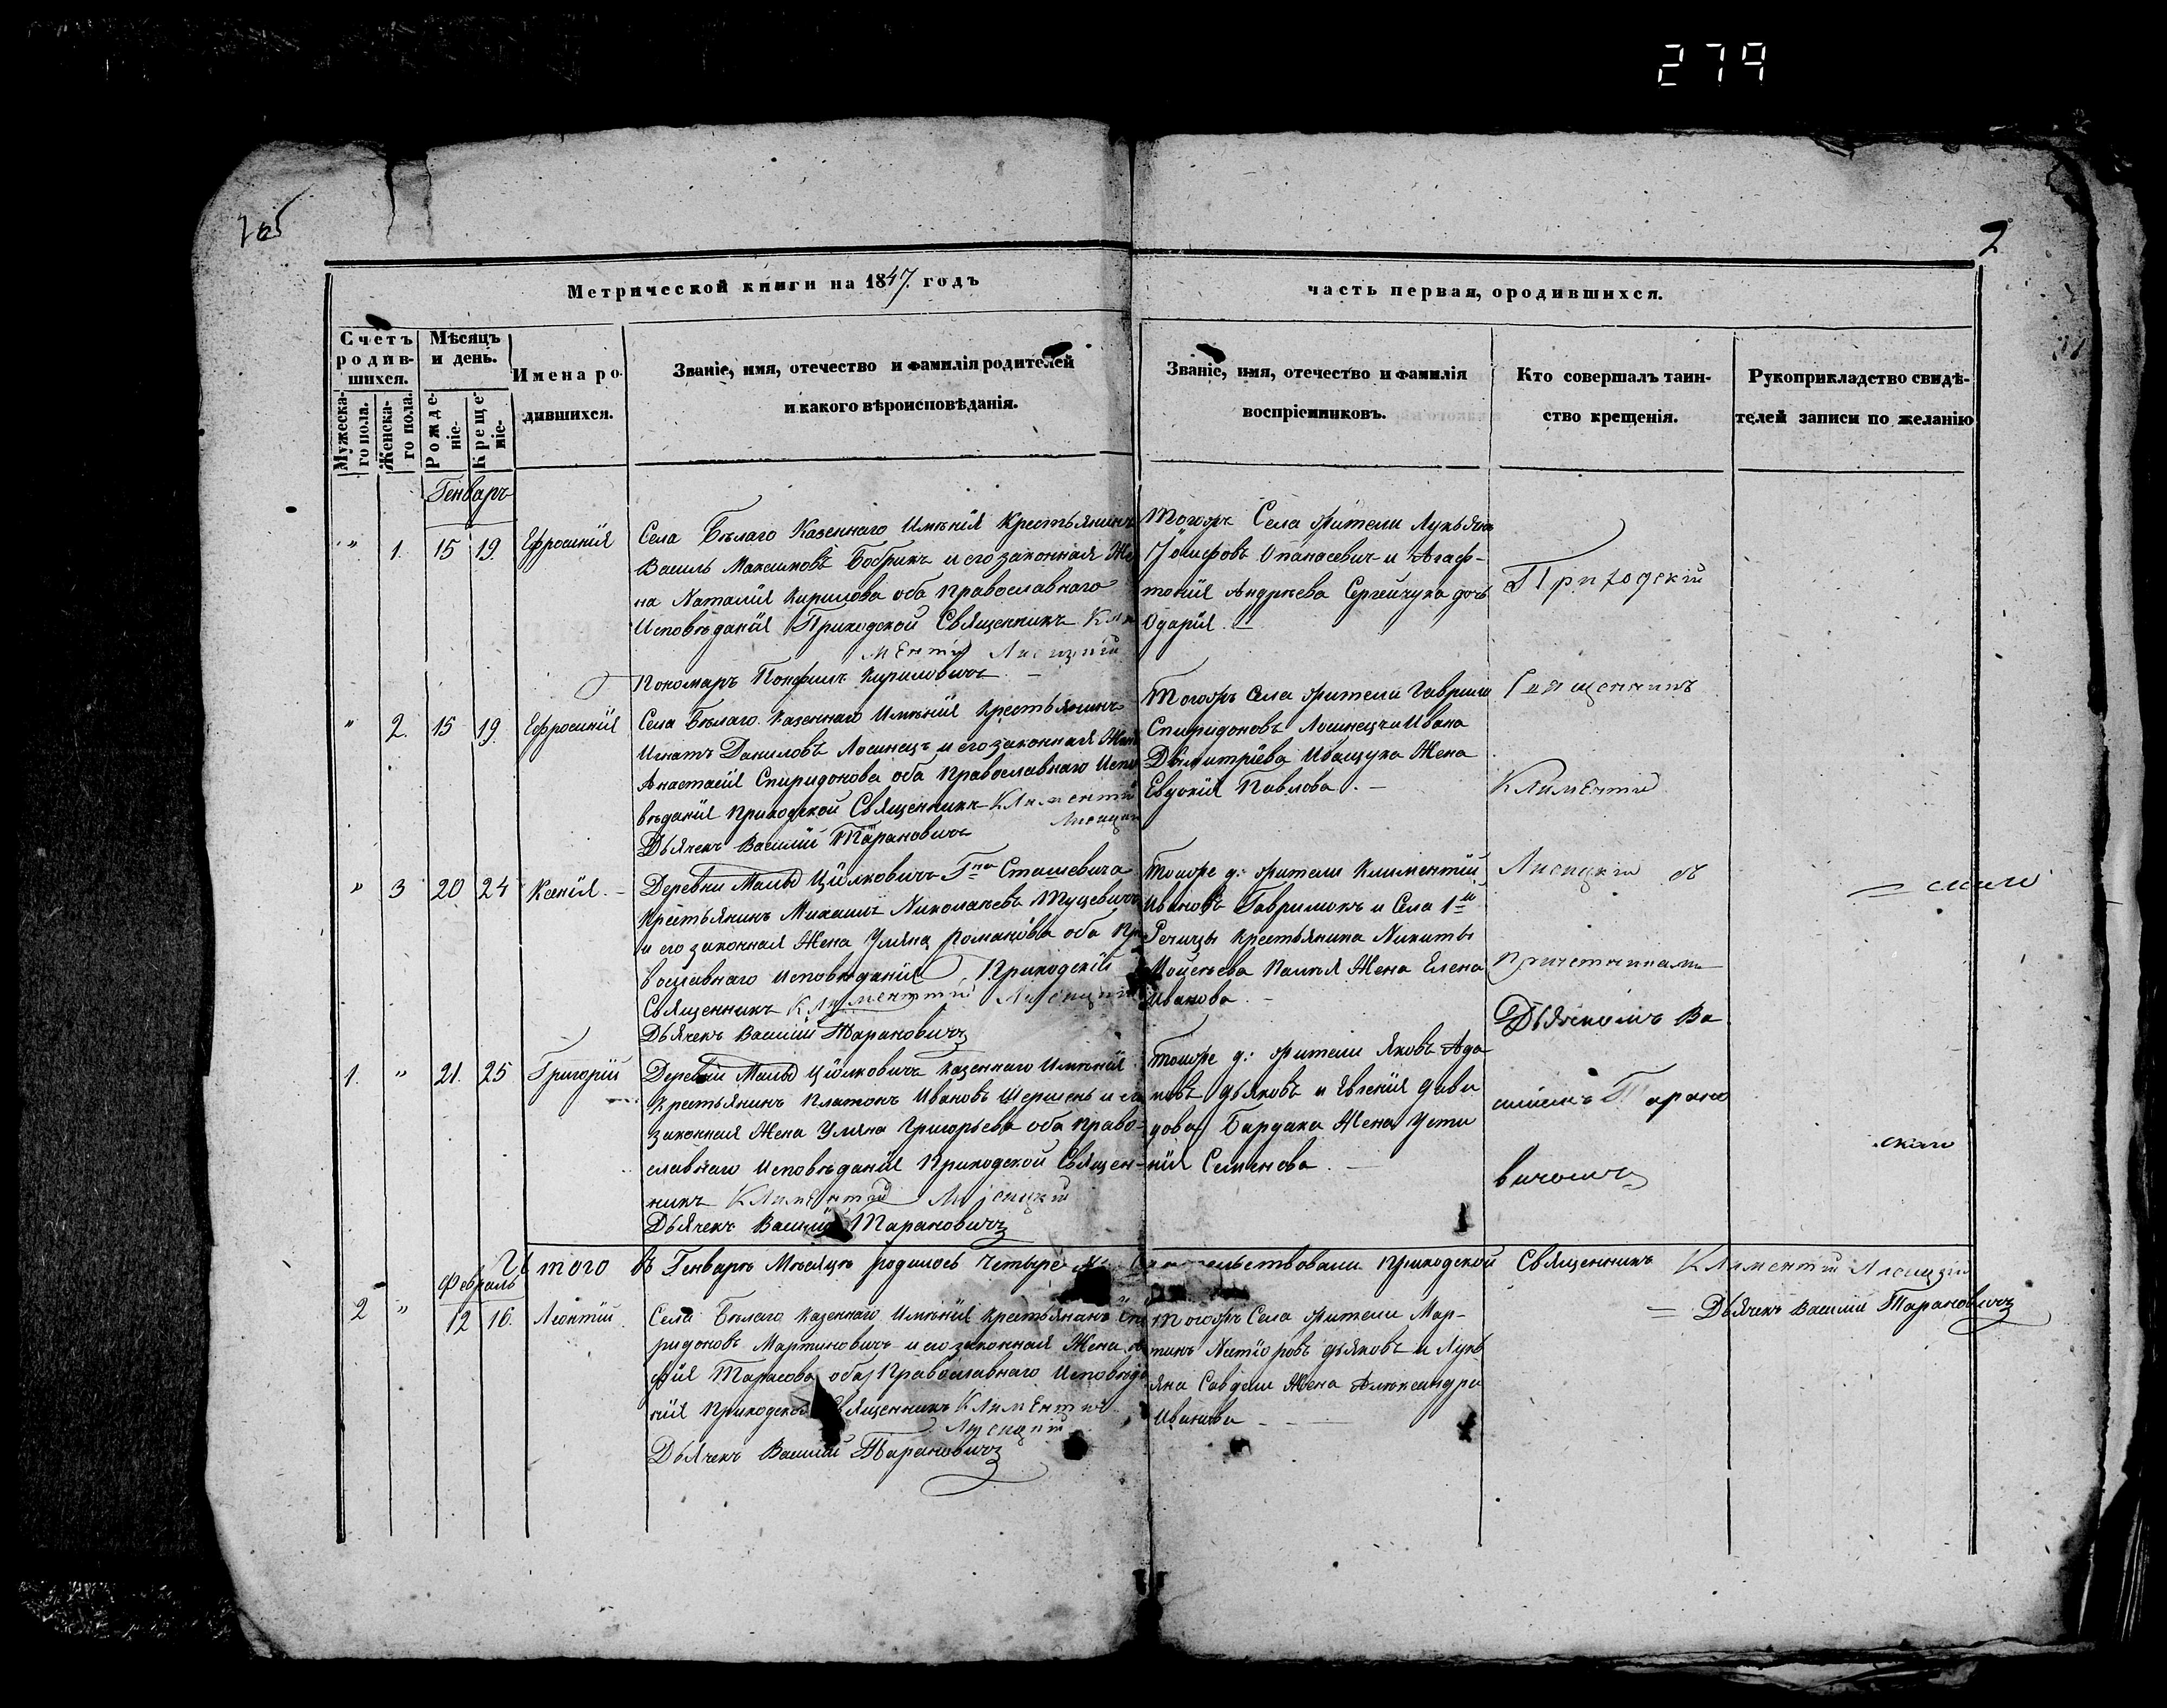 279
265
2
Метрической книги на 1847 годъ
часть первая, ородившихся.
Счетъ родив-шихся.
Мужеска-го пола.
Женска-го пола.
Мѣсяцъ и день.
Рожде-ніе.
Креще-ніе.
Имена ро-дившихся.
Званіе, имя, отечество и фамилія родителей
и какого вѣроисповѣданія.
Званіе, имя, отечество и фамилія
воспріемниковъ.
Кто совершалъ таин-
ство крещенія.
Рукоприкладство свидѣ-
телей записи по желанію
Генварь
" 1. 15 19 Ефросинія
Села Бѣлаго Казеннаго Имѣнія Крестьянинъ
Василь Максимовъ Бобрикъ и его законная Же
на Наталія Кирилова оба Православнаго
Исповѣданія Приходской Священникъ Кли
ментій Лисицкій
Пономаръ Панфилъ Кириловичъ
Тогожъ Села жители Лукьянъ
Іосифовъ Опанасевич и Агаф-
Андрѣева Сергейчука дочь
Одарія
" 2. 15 19 Ефросинія
Села Бѣлаго Казеннаго Имѣнія Крестьянинъ
Игнатъ Даниловъ Лосинецъ и его законная Жена
Анастасія Спиридонова оба Православнаго Испо
вѣданія Приходской Священникъ Климентій
Лисицкій
Дьячекъ Василій Тарановичъ
Тогожъ Села жители Гаврило
Спиридоновъ Лосинецъ и Ивана
Дымитріева Иващука Жена
Евдокія Павлова
" 3 20 24 Ксенія
Деревни Малыо Ціолковичъ Гна Сташевича
Крестьянинъ Михаилъ Николаевъ
и его законная Жена Уляна Романова оба Пра
вославнаго Исповѣданія Приходскій
Священникъ Климентій Лисицкій
Дьячекъ Василій Тарановичъ
Тойже д: жители Климентій
Ивановъ Гаврилюкъ и Села 1й
Речицы Крестьянина Никиты
Жена Елена
Иванова
1. " 21. 25 Григорій
Деревни Малыо Ціолковичъ Казеннаго Имѣнія
Крестьянинъ Платонъ Ивановъ Шершень и его
законная Жена Уляна Григорьева оба Право-
славнаго Исповѣданія Приходской Священ-
никъ Климентій Лисицкій
Дьячекъ Василій Тарановичъ
Тойже д: жители Яковъ Ада
мовъ Дьяковъ и Евгенія Дави
дова Бардака Жена Усти
нія Семенова
Приходскій
Священникъ
Климентій
Лисицкій съ
Причетникамъ
Дьячкомъ Ва
силіемъ Тарано
вичомъ
Итого въ Генварѣ Мѣсяцѣ родилось Четыре
Приходской Священникъ Климентій Лисицкій
Дьячекъ Василій Тарановичъ
Февраль
2 " 12 16. Леонтій
Села Бѣлаго Казеннаго Имѣнія Крестьянинъ Спи
ридоновъ Мартиновичъ и его законная Жена
Тарасова оба Православнаго Исповѣда
нія Приходской Священникъ Климентій
Лисицкій
Дьячекъ Василій Тарановичъ
Тогожъ Села жители Мар-
тинъ Дьяковъ и Лукь
яна Савдели Жена Александра
Иванова